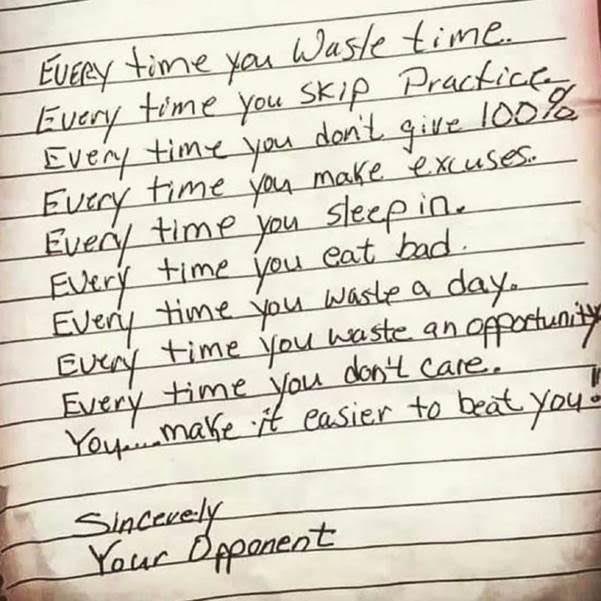 EVERY time you Waste time.
Every time you SKIP Practice.
Every time you don't give 100%
Every time you make excuses.
Every time you sleep in.
Every time you eat bad.
Every time you waste a day.
Every time you waste an opportunity
Every time you don't care.
You.....make it easier to beat you!!
Sincerely
Your Opponent